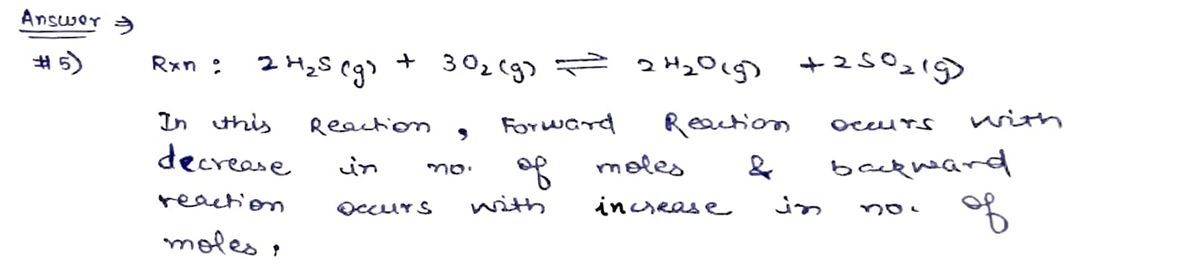 Answer ⇒
#5) Rxn : 2H₂S(g) + 3O₂(g) ⇌ 2H₂O(g) + 2SO₂(g)
In this Reaction, Forward Reaction occurs with
decrease in no. of moles & backward
reaction occurs with increase in no. of
moles.